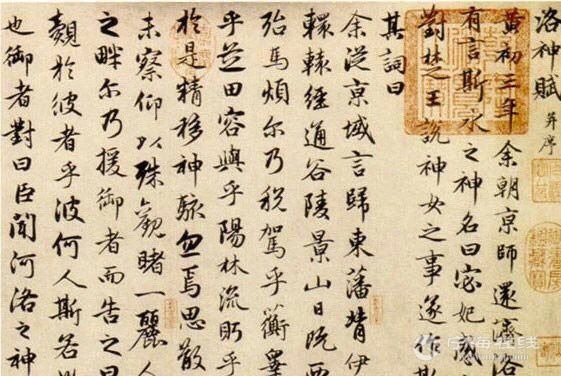 洛神賦 并序
黃初三年余朝京師還濟洛
有言斯水之神名曰宓妃感
對楚王說神女之事遂作斯
其詞曰
余從京域言歸東藩背伊
轘轅經通谷陵景山日既西
殆馬煩尔乃稅駕乎蘅皋
乎芝田容與乎陽林流眄乎
於是精移神駭忽焉思散
未察仰以殊觀睹一麗人
之畔尔乃援御者而告之曰
覿於彼者乎彼何人斯若
也御者對曰臣聞河洛之神